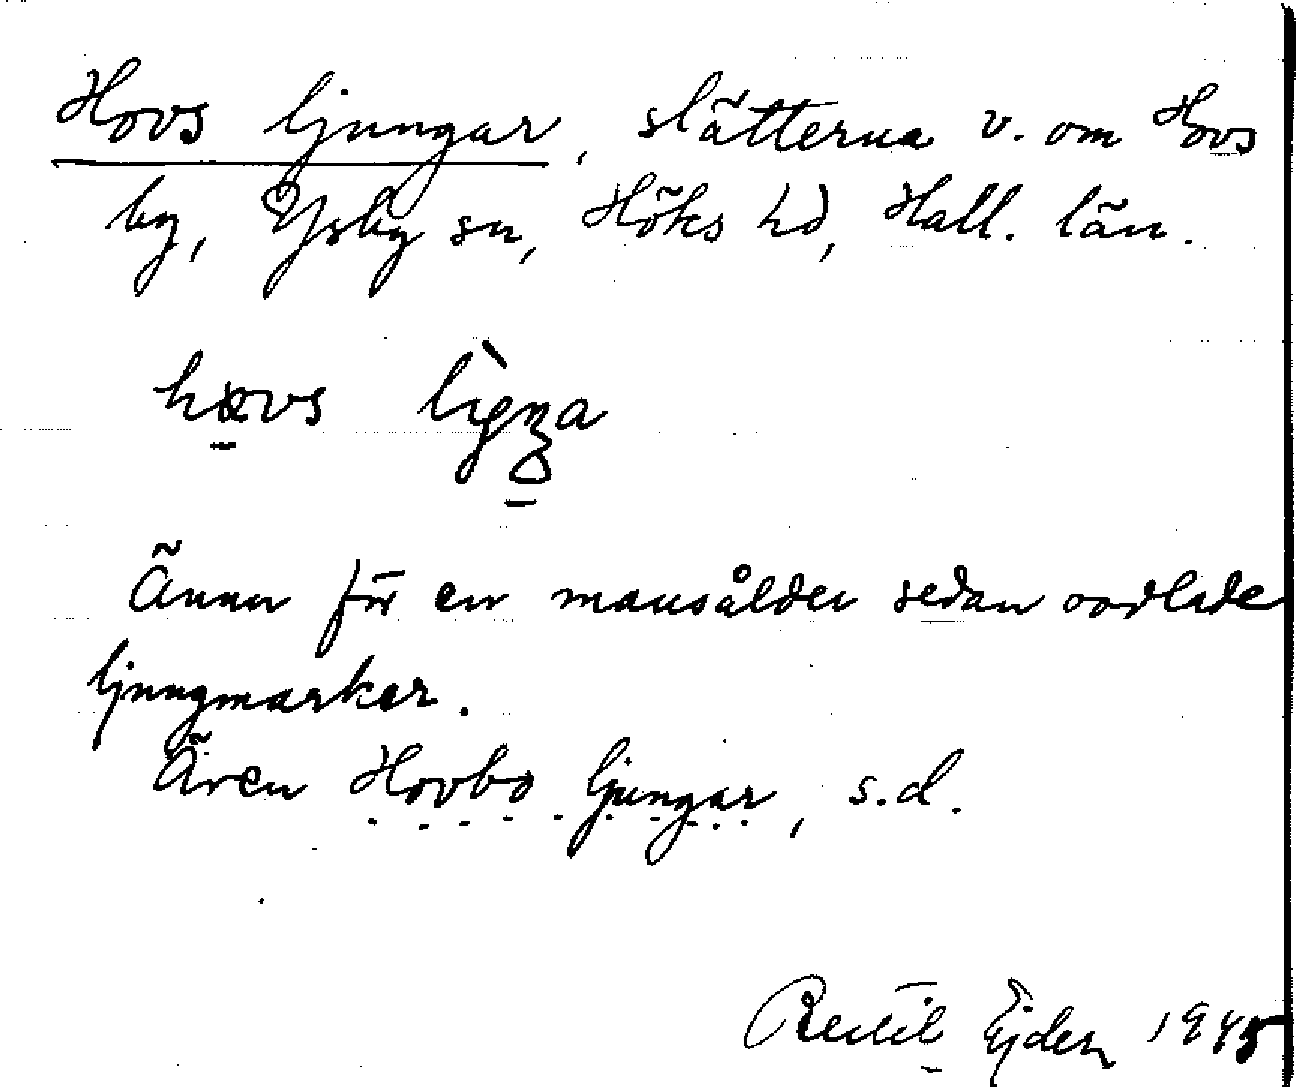 Hovs ljungar, slätterna v. om Hovs
by, Ysby sn, Höks hd, Hall. län.
Ännu för en mansålder sedan oodlade
ljungmarker.
Även Hovbo ljungar, s.d.
Bertil Ejder 1945